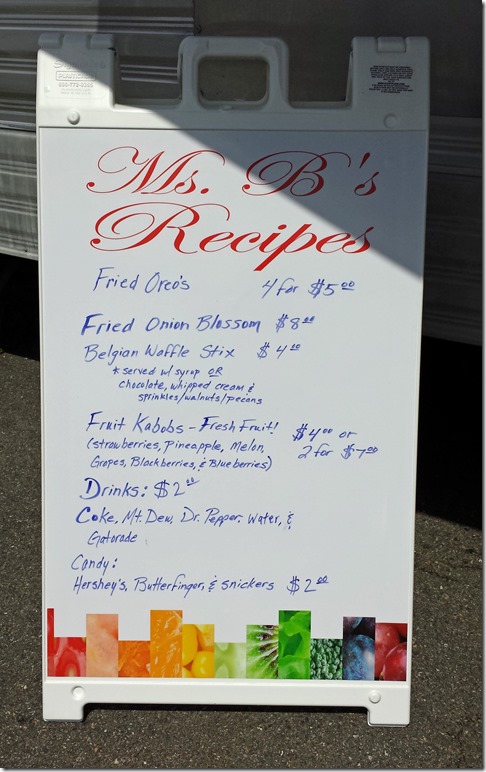 Ms. B's
Recipes
Fried Oreo's 4 for $5.00
Fried Onion Blossom $8.00
Belgian Waffle Stix $4.00
* served w/ syrup OR
chocolate, whipped cream &
sprinkles/walnuts/pecans
Fruit Kabobs - Fresh Fruit! $4.00 or
(strawberries, Pineapple, Melon, 2 for $7.00
Grapes, Blackberries, & Blueberries)
Drinks: $2.00
Coke, Mt. Dew, Dr. Pepper, Water, &
Gatorade
Candy:
Hershey's, Butterfinger, & Snickers $2.00